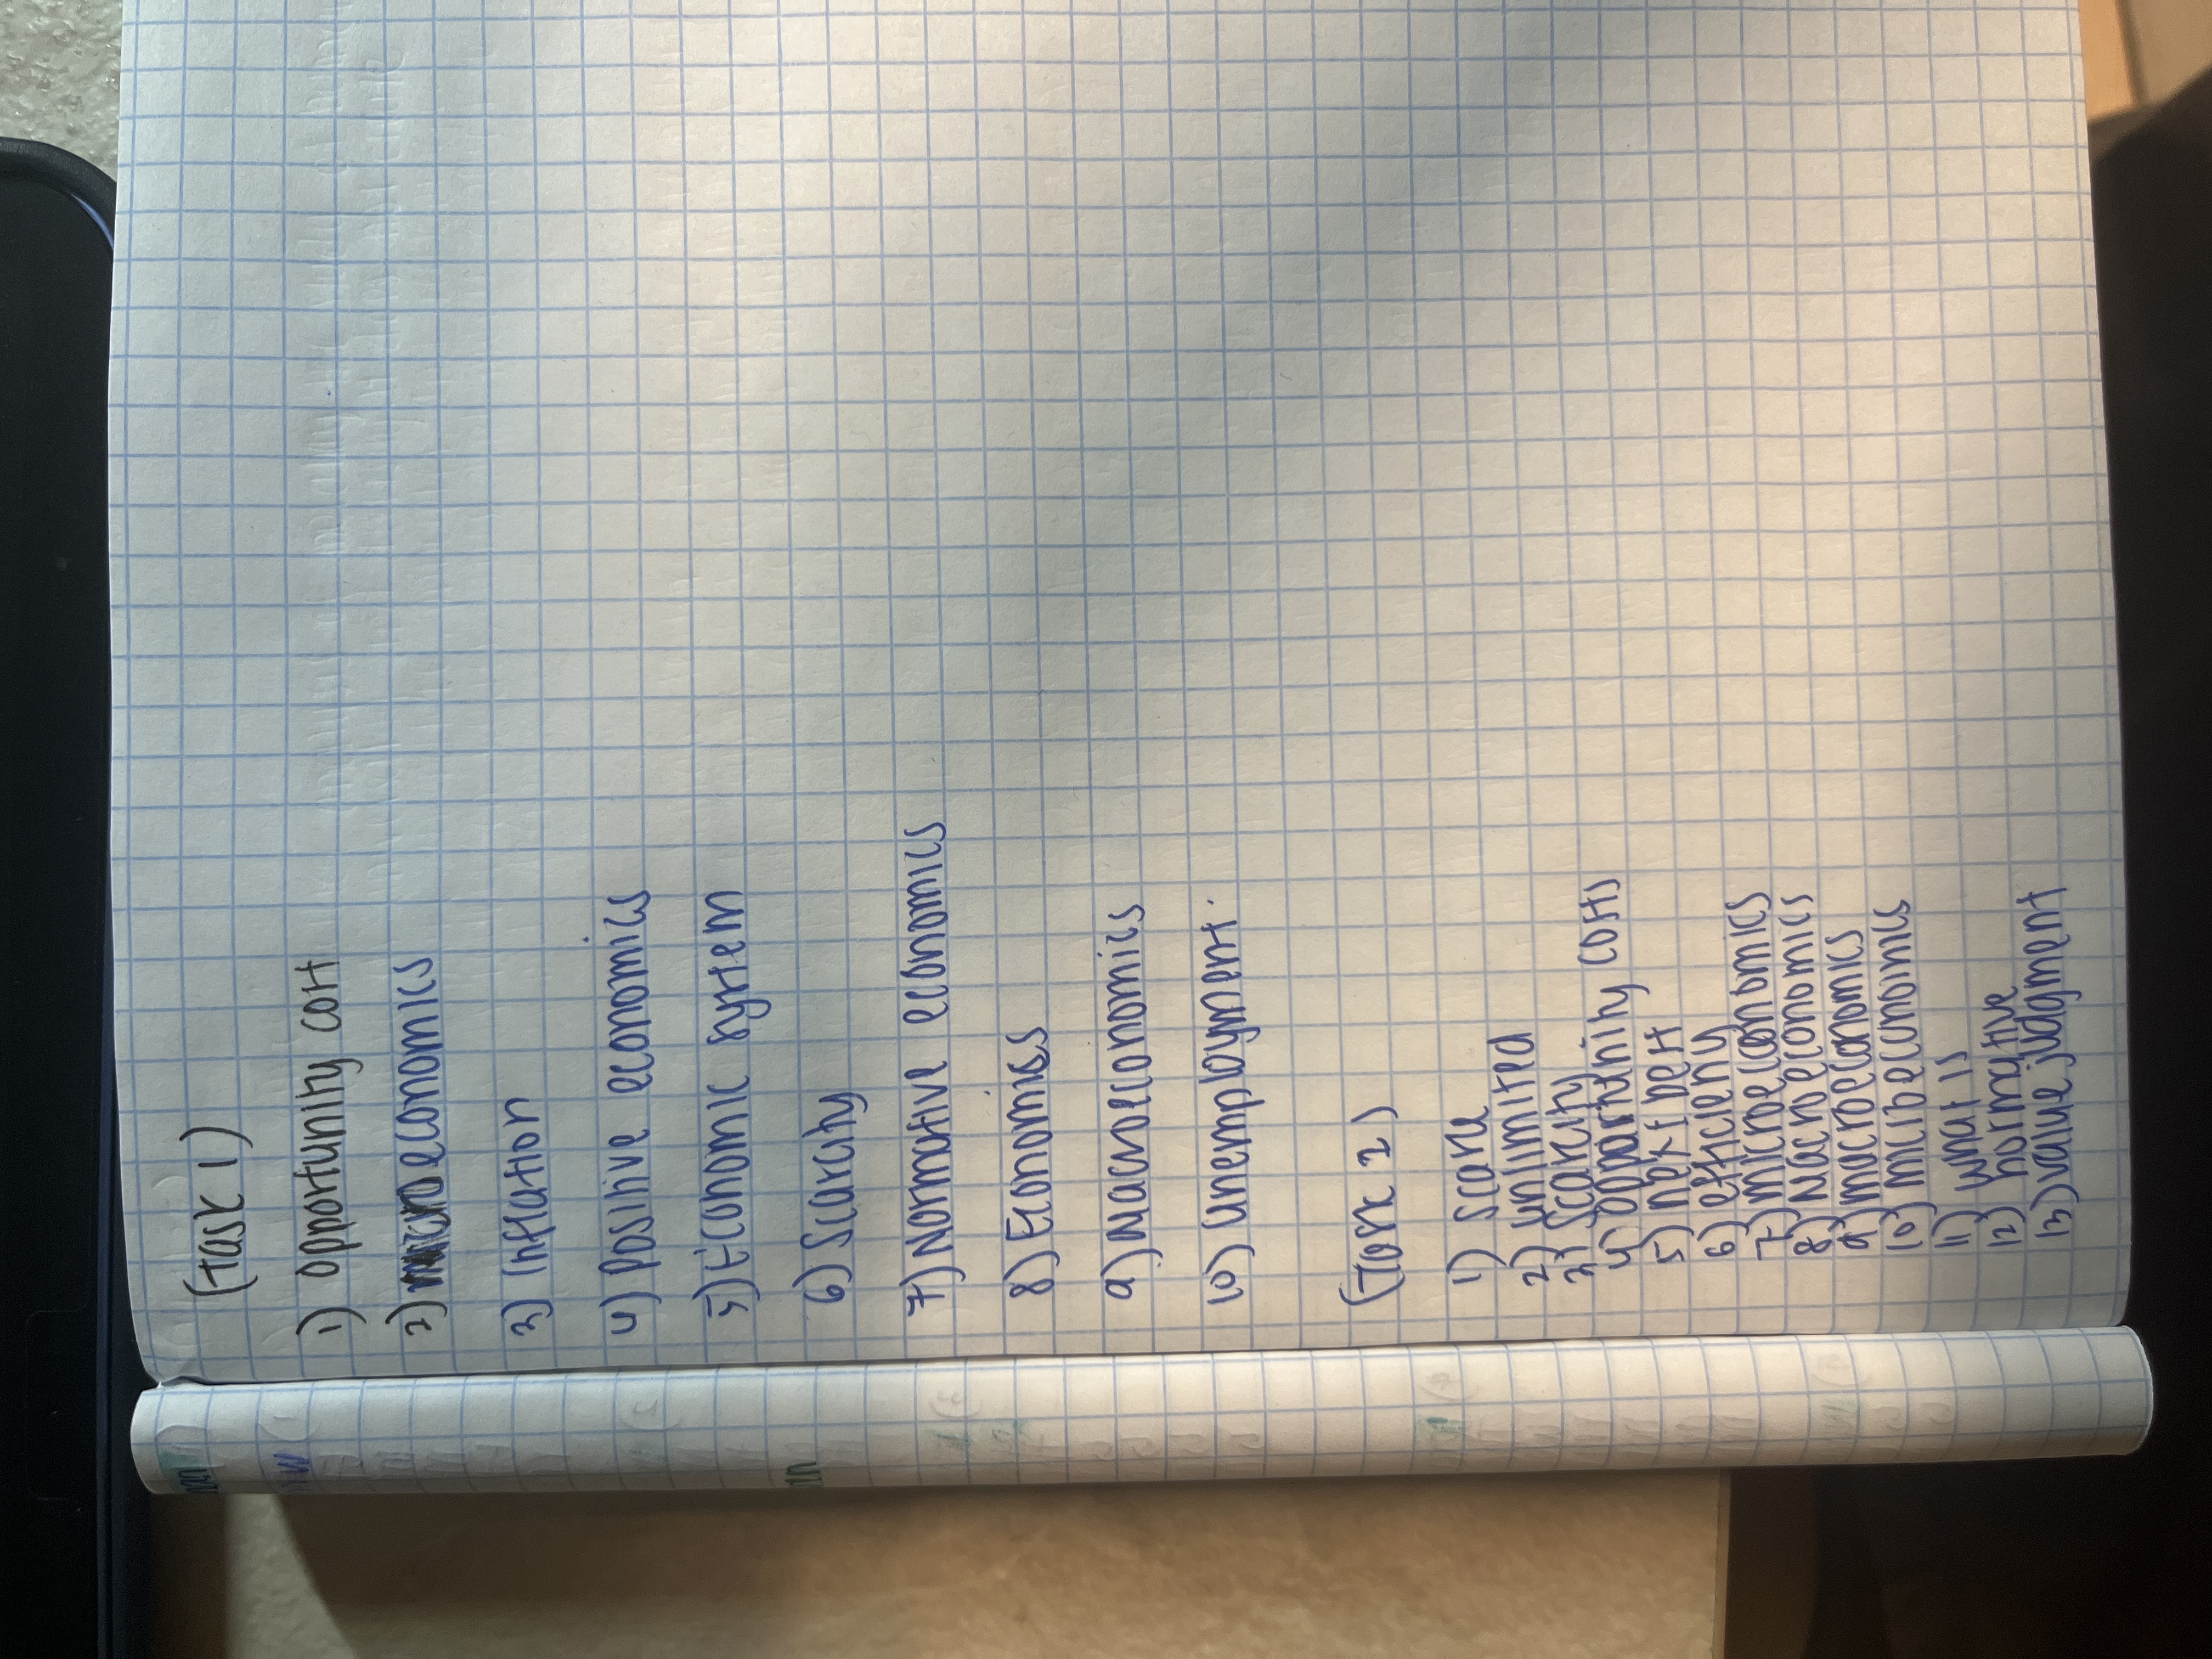 (Task 1)
1) opportunity cost
2) microeconomics
3) inflation
4) positive economics
5) Economic system
6) Scarcity
7) Normative economics
8) Economics
9) Macroeconomics
10) unemployment.
(Task 2)
1) scarce
2) unlimited
3) Scarcity
4) opportunity costs
5) next best
6) efficieny
7) microeconomics
8) Macroeconomics
9) macroeconomics
10) microeconomics
11) what is
12) normative
13) value judgment